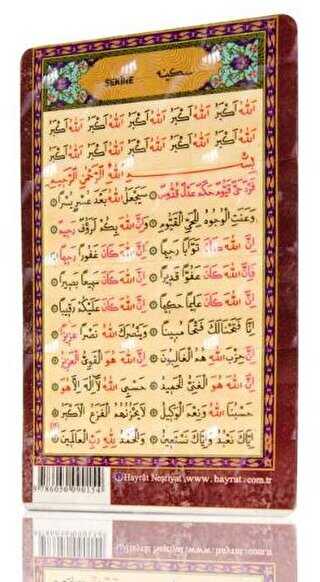 SEKİNE سكينه
اَللهُ اَكْبَرُ اَللهُ اَكْبَرُ اَللهُ اَكْبَرُ اَللهُ اَكْبَرُ اَللهُ اَكْبَرُ
اَللهُ اَكْبَرُ اَللهُ اَكْبَرُ اَللهُ اَكْبَرُ اَللهُ اَكْبَرُ اَللهُ اَكْبَرُ
بِسْمِ اللهِ الرَّحْمٰنِ الرَّحِيمِ
فَرْدٌ حَىٌّ قَيُّومٌ حَكَمٌ عَدْلٌ قُدُّوسٌ سَيَجْعَلُ اللهُ بَعْدَ عُسْرٍ يُسْرًا
وَعَنَتِ الْوُجُوهُ لِلْحَىِّ الْقَيُّومِ وَاِنَّ اللهَ بِكُمْ لَرَؤُفٌ رَحِيمٌ
اِنَّ اللهَ كَانَ تَوَّابًا رَحِيمًا اِنَّ اللهَ كَانَ غَفُورًا رَحِيمًا
فَاِنَّ اللهَ كَانَ عَفُوًّا قَدِيرًا اِنَّ اللهَ كَانَ سَمِيعًا بَصِيرًا
اِنَّ اللهَ كَانَ عَلِيمًا حَكِيمًا اِنَّ اللهَ كَانَ عَلَيْكُمْ رَقِيبًا
اِنَّا فَتَحْنَا لَكَ فَتْحًا مُبِينًا وَيَنْصُرَكَ اللهُ نَصْرًا عَزِيزًا
اِنَّ حِزْبَ اللهِ هُمُ الْغَالِبُونَ اِنَّ اللهَ هُوَ الْقَوِىُّ الْعَزِيزُ
اِنَّ اللهَ هُوَ الْغَنِىُّ الْحَمِيدُ حَسْبِىَ اللهُ لَا اِلٰهَ اِلَّا هُوَ
حَسْبُنَا اللهُ وَنِعْمَ الْوَكِيلُ لَا يَحْزُنُهُمُ الْفَزَعُ الْاَكْبَرُ
اِيَّاكَ نَعْبُدُ وَاِيَّاكَ نَسْتَعِينُ وَالْحَمْدُ لِلّٰهِ رَبِّ الْعَالَمِينَ
Hayrât Neşriyat www.hayrat.com.tr